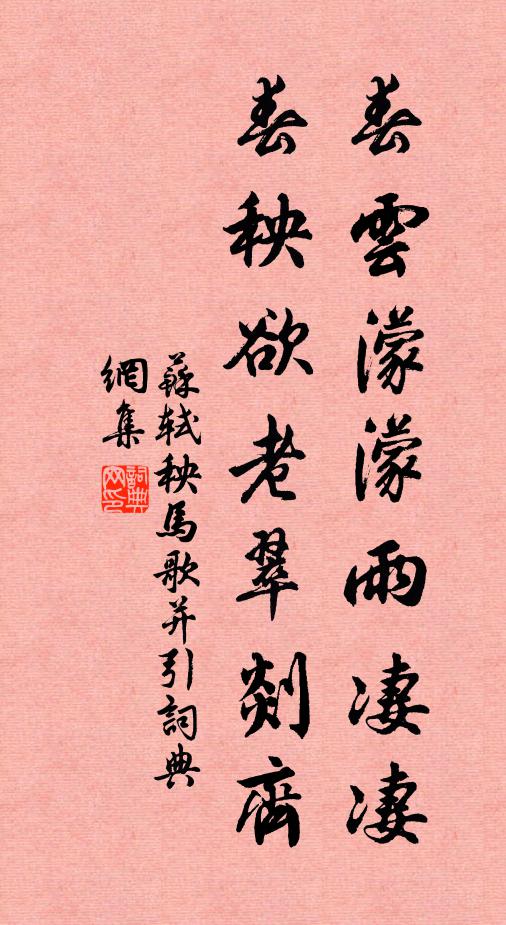 春雲濛濛雨凄凄
春秧欲老翠剡齊
蘇軾秧馬歌并引詞典
網集
詞典
网印